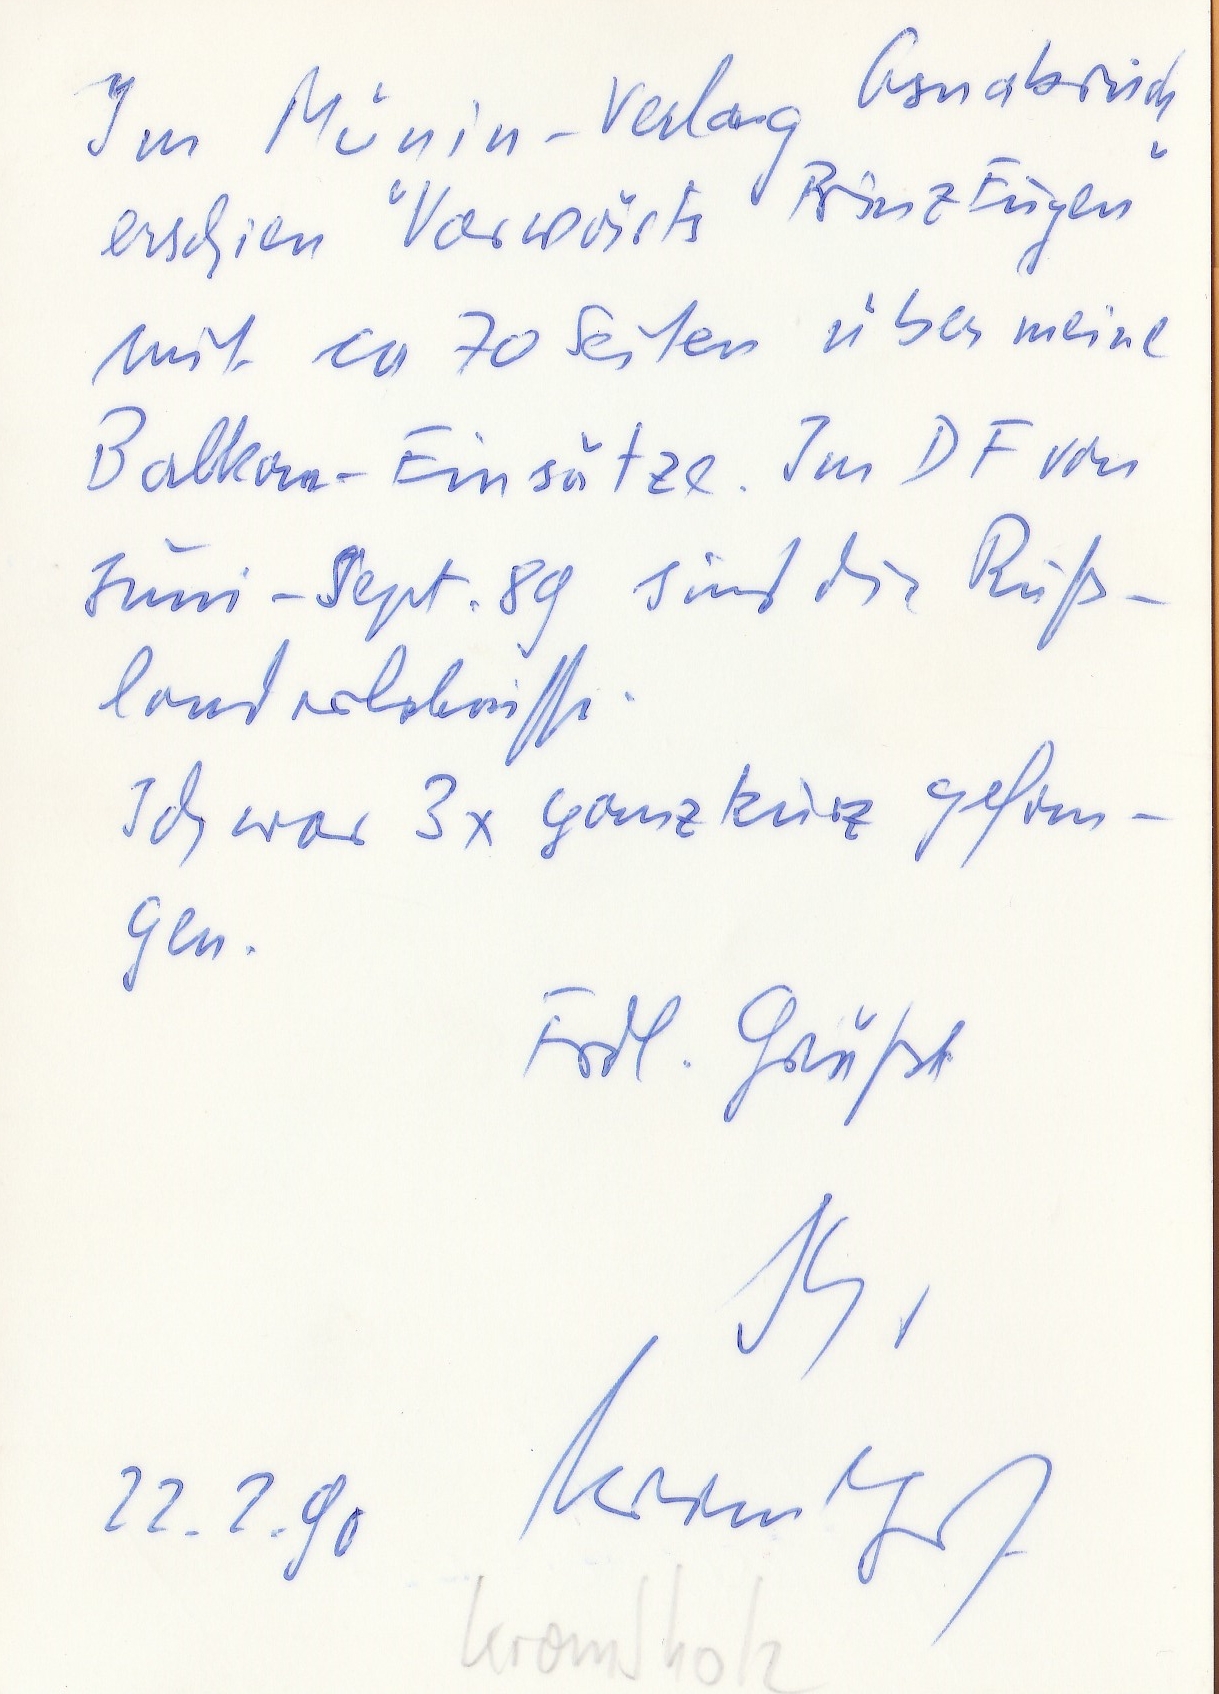 Im Munin-Verlag Osnabrück
erschien "Vorwärts Prinz Eugen"
mit ca 70 Seiten über meine
Balkan-Einsätze. Im DF von
Juni-Sept. 89 sind die Ruß-
landerlebnisse.
Ich war 3x ganz kurz gefan-
gen.
Frdl. Grüße
Ihr
22.2.90
Kromholz